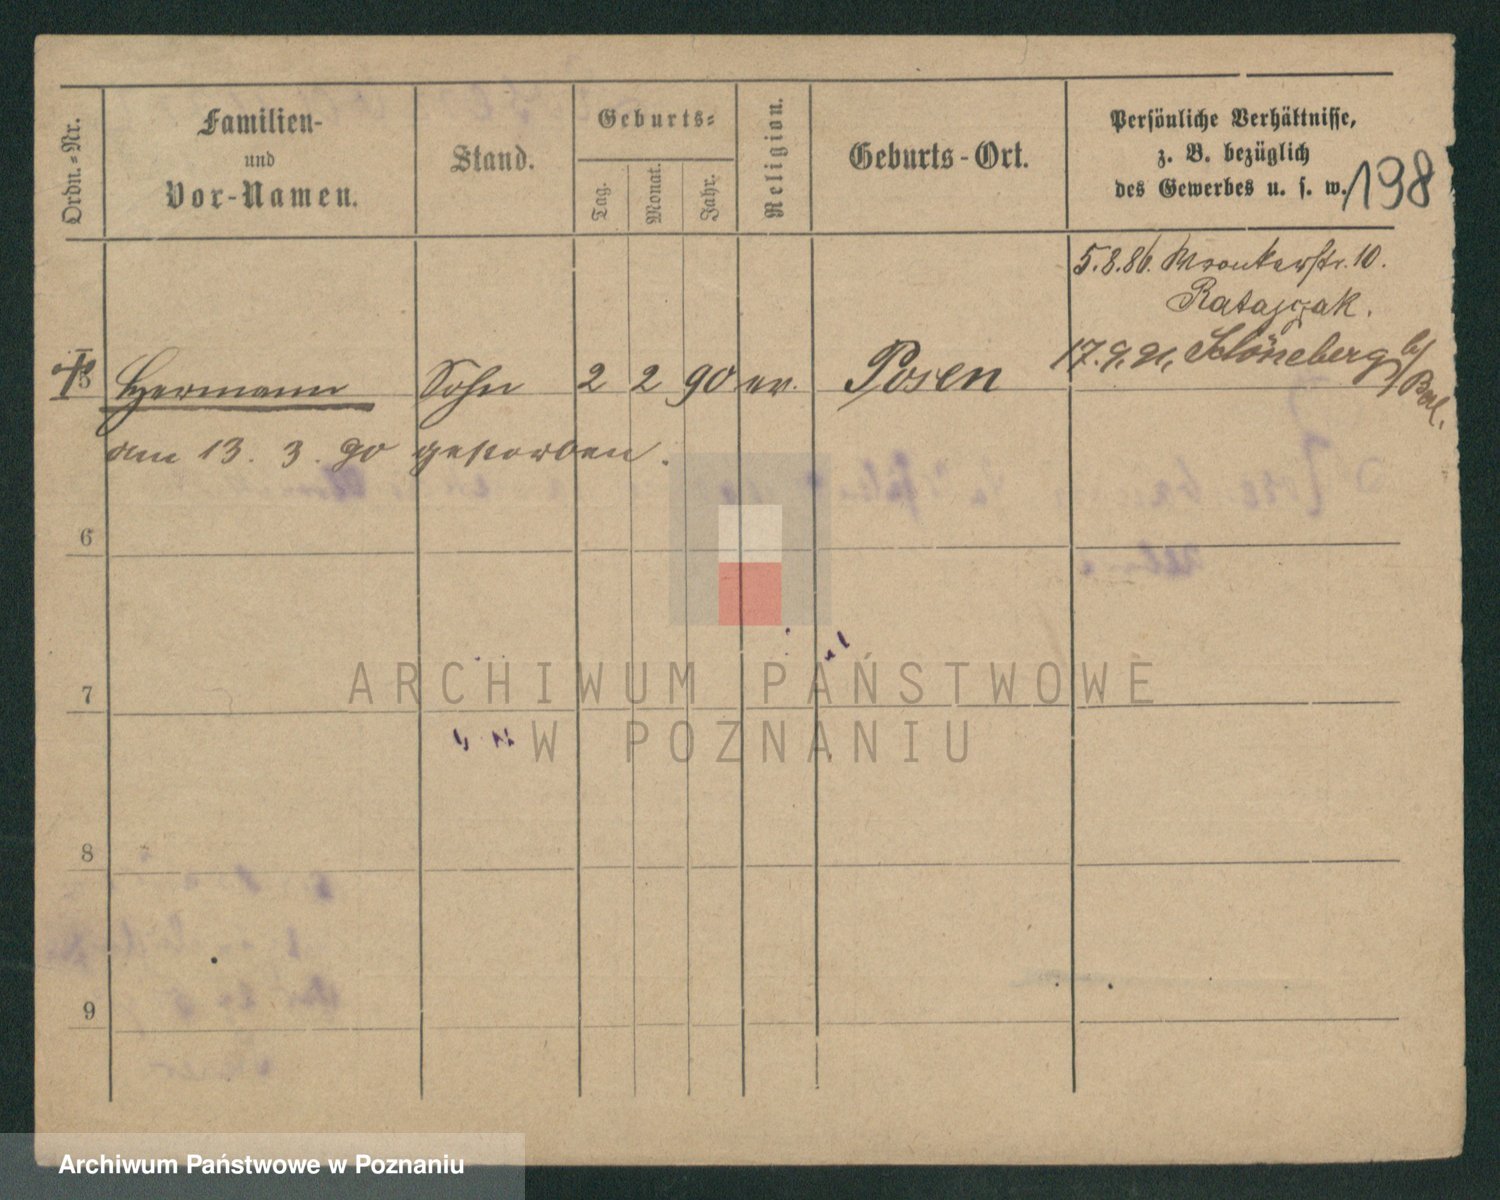 Ordn.-Nr.
Familien-
und
Vor-Namen.
Stand.
Geburts-
Tag.
Monat.
Jahr.
Religion.
Geburts-Ort.
Persönliche Verhältnisse,
z. B. bezüglich
des Gewerbes u. s. w.
198
5.8.86. Wronkerstr. 10.
Ratajczak.
17.9.91, Schöneberg b/
Berl.
5 Hermann Sohn 2 2 90 ev. Posen
am 13. 3. 90 gestorben.
6
7
8
9
ARCHIWUM PAŃSTWOWE
W POZNANIU
Archiwum Państwowe w Poznaniu